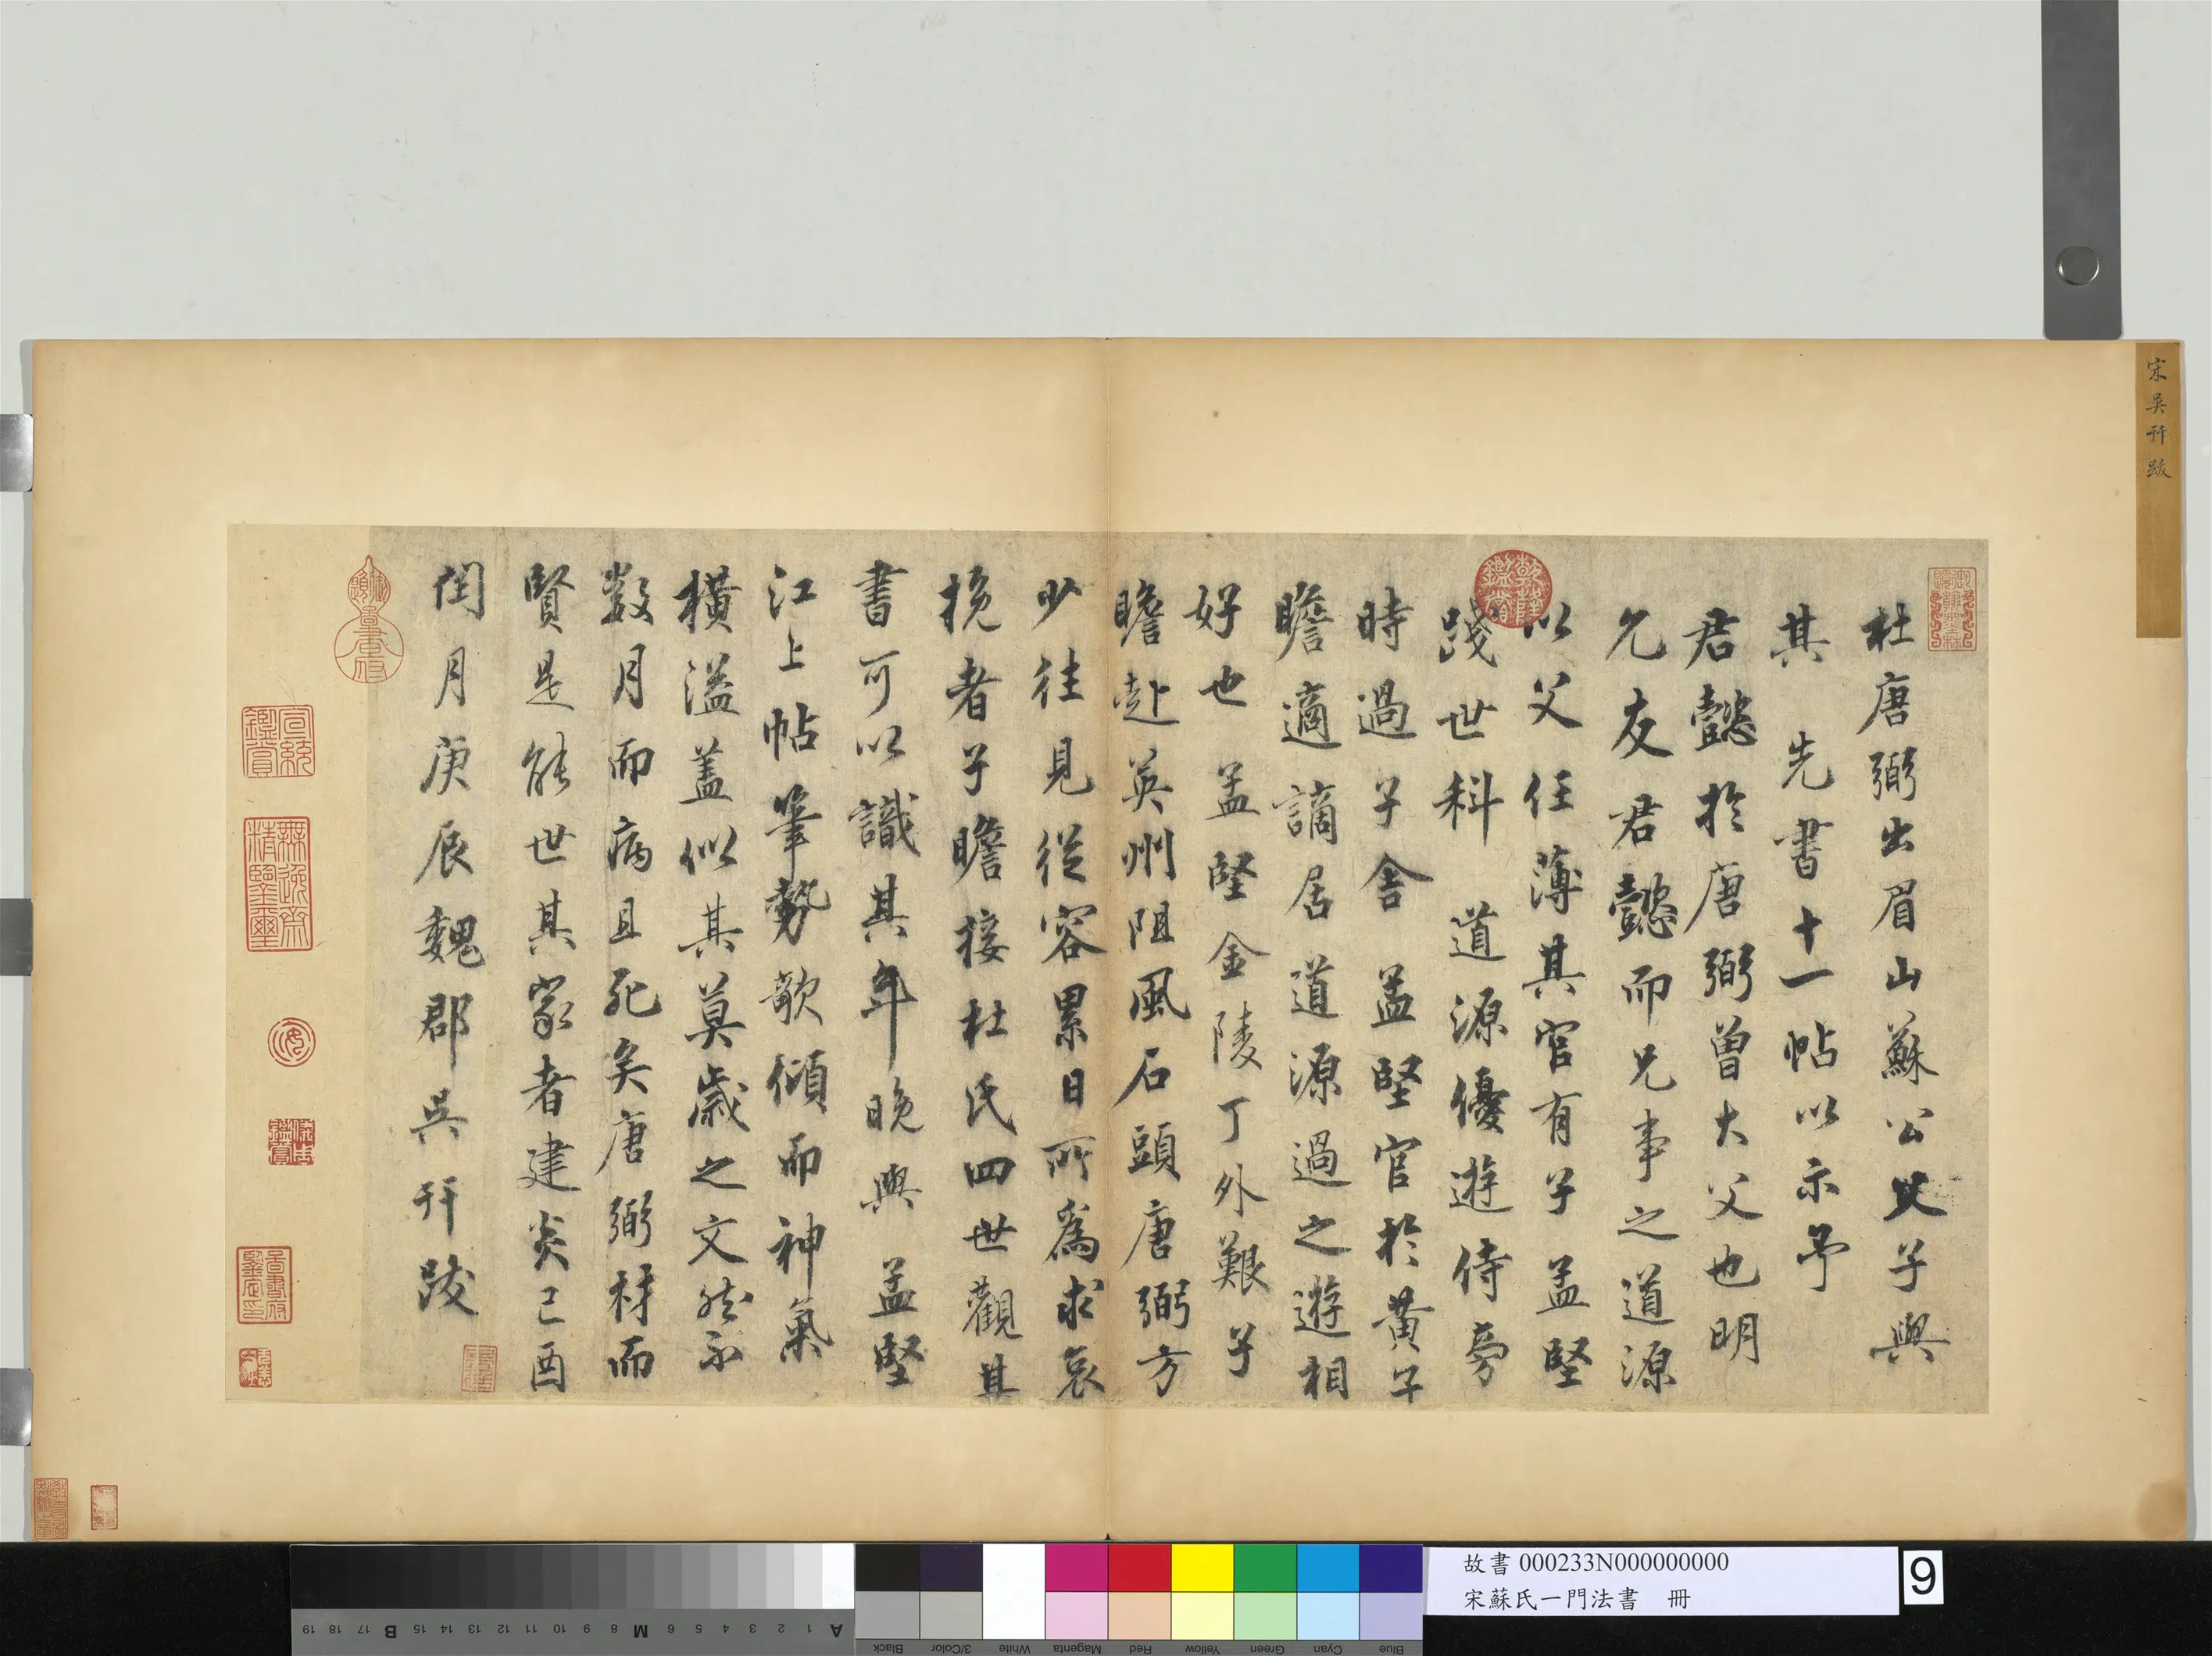 宋吳幵跋
杜唐弼出眉山蘇公父子與
其先書十一帖以示予
君懿於唐弼曾大父也明
允友君懿而兄事之道源
以父任薄其官有子孟堅
踐世科道源優遊侍旁
時過子舍孟堅官於黃子
瞻適謫居道源過之遊相
好也孟堅金陵丁外艱子
瞻赴英州阻風石頭唐弼方
少往見從容累日所為求哀
挽者子瞻接杜氏四世觀其
書可以識其年晚與孟堅
江上帖筆勢欹傾而神氣
橫溢蓋似其莫歲之文然不
數月而病且死矣唐弼材而
賢是能世其家者建炎己酉
閏月庚辰魏郡吳幵跋
乾隆鑑賞
宣統鑑賞
無逸齋精鑒璽
故書 000233N000000000
宋蘇氏一門法書 冊
9
A 1 2 3 4 5 6 7 8 M 9 10 11 12 13 14 15 B 17 18 19
Blue Cyan Green Yellow Red Magenta White 3/Color Black